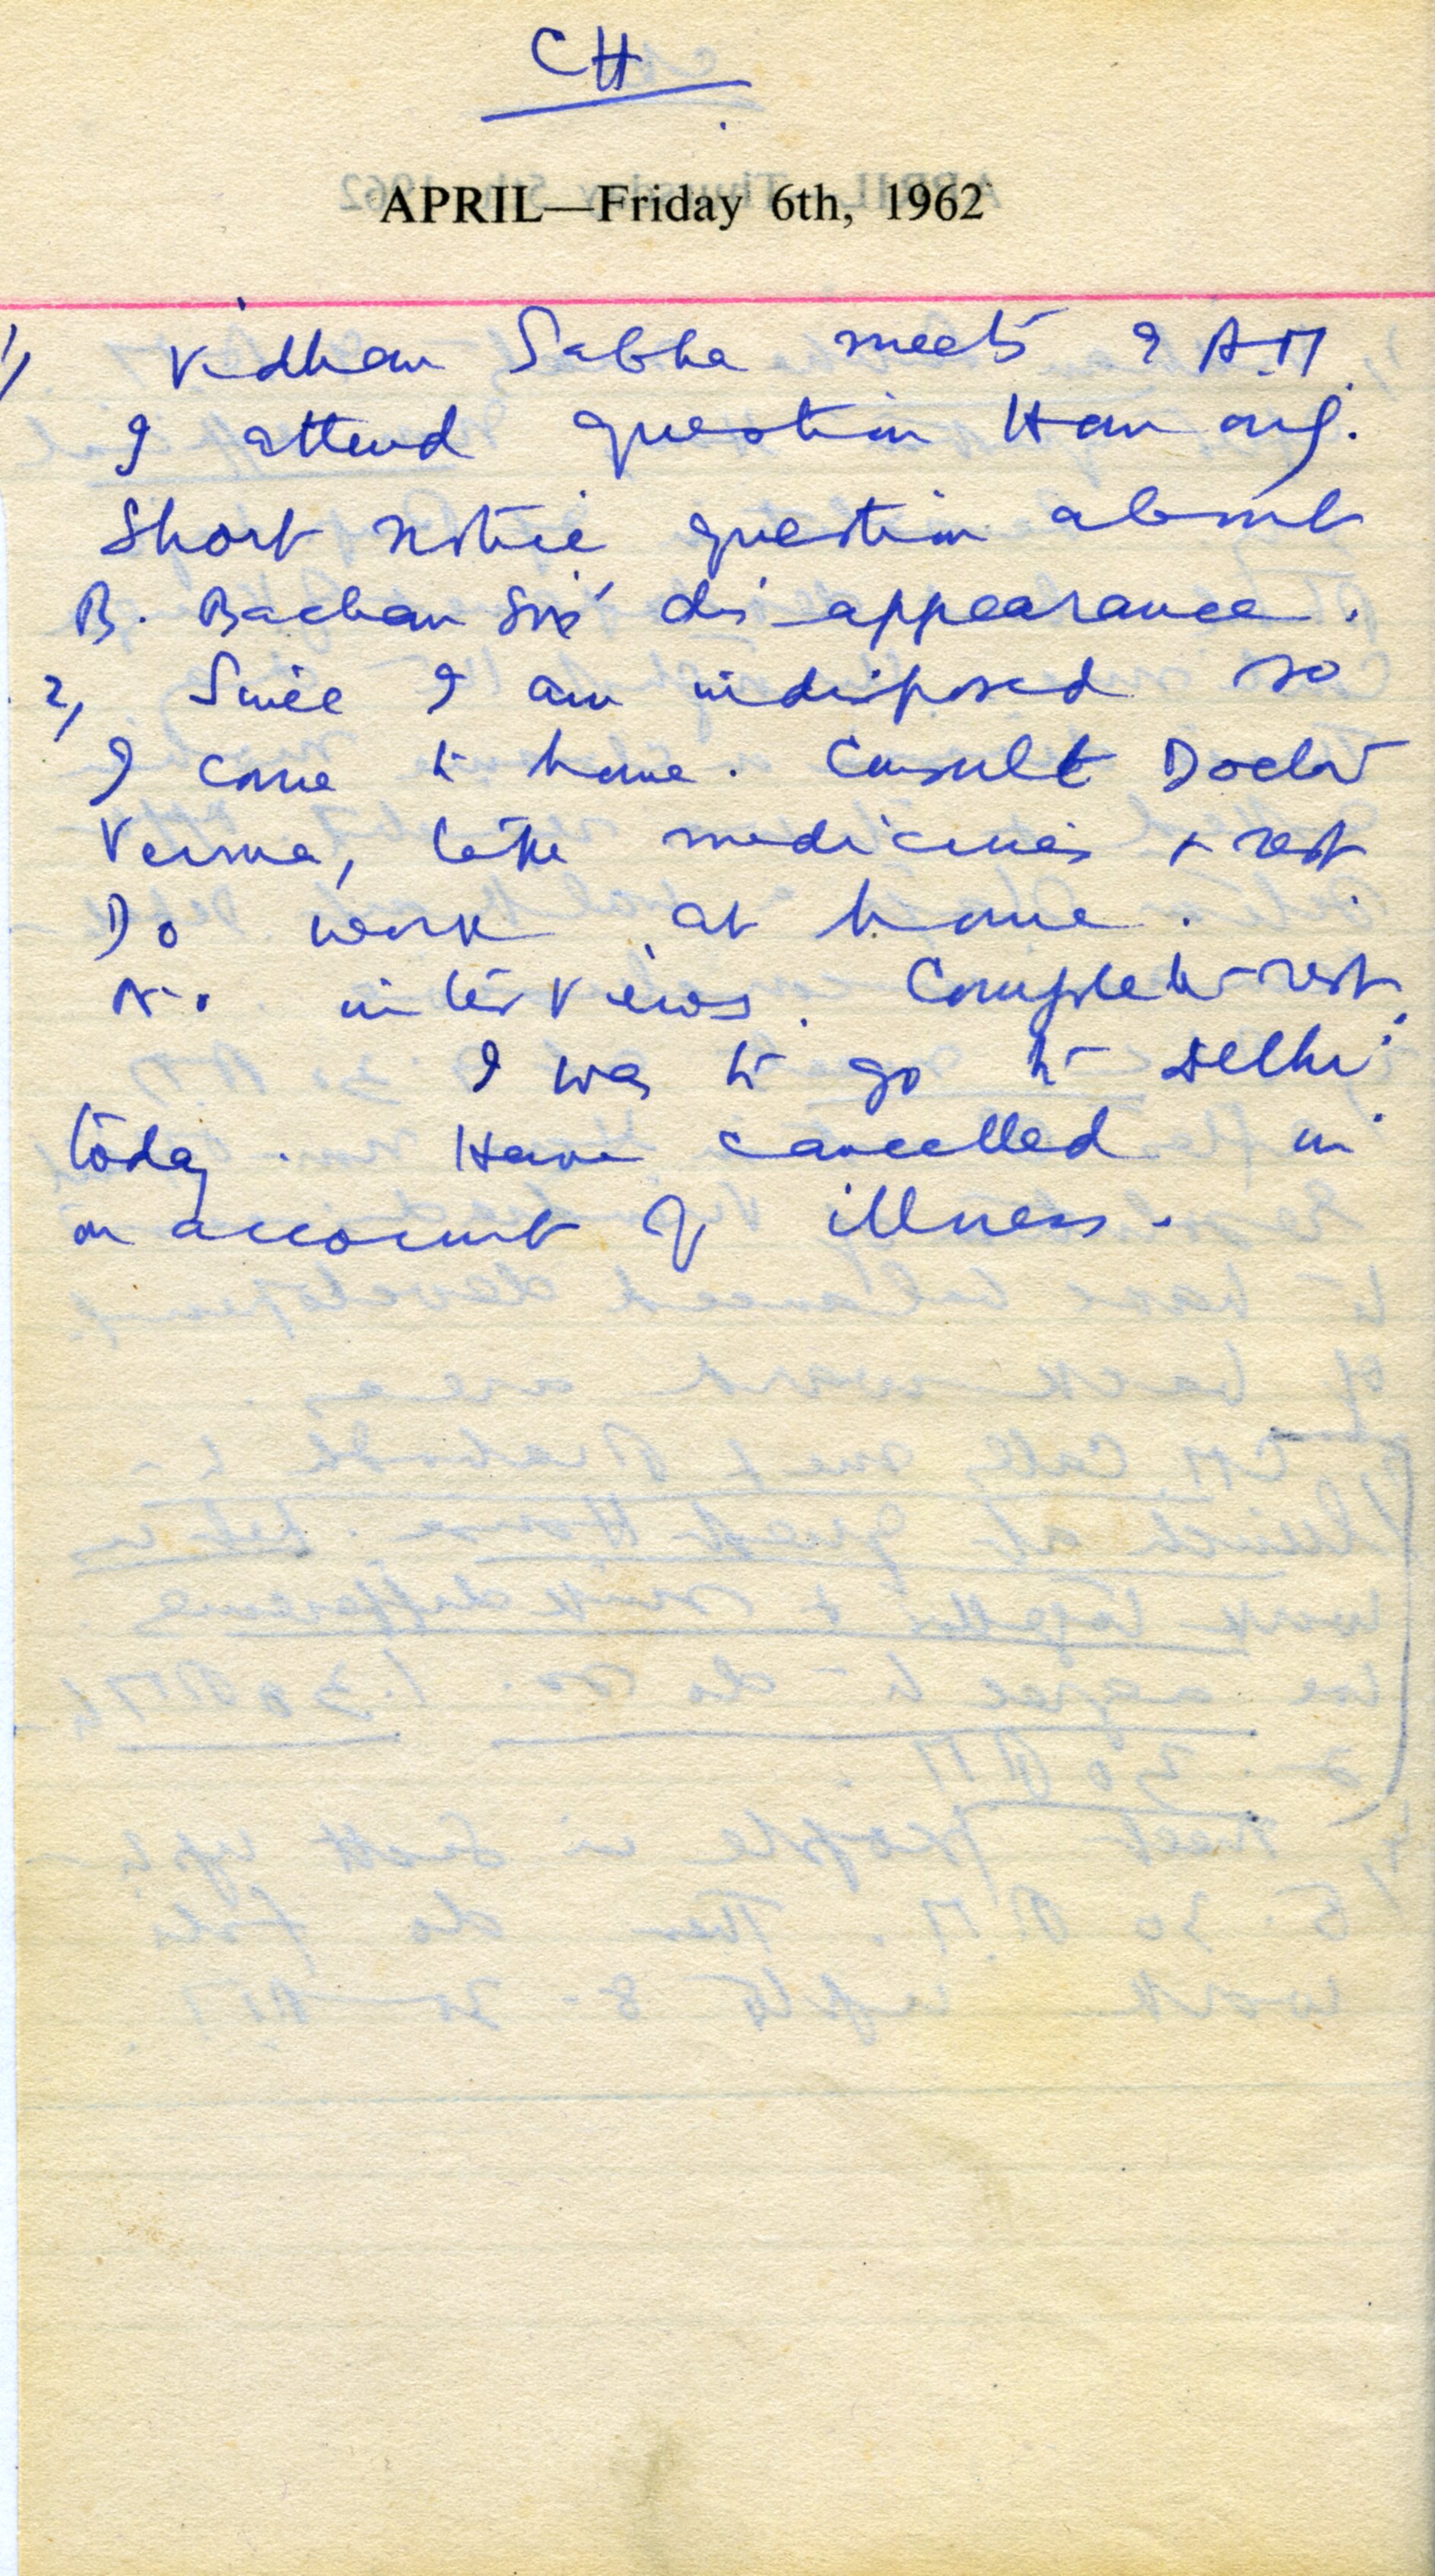 CH
APRIL—Friday 6th, 1962
1) Vidhan Sabha meets 9 A.M.
I attend question Hour only.
Short notice question about
B. Bachan Singh disappearance.
2, Since I am indisposed so
I come to home. Consult Doctor
Verma, take medicines + rest
Do work at home.
No interviews. Complete rest.
I was to go to Delhi
today. Have cancelled it
on account of illness.